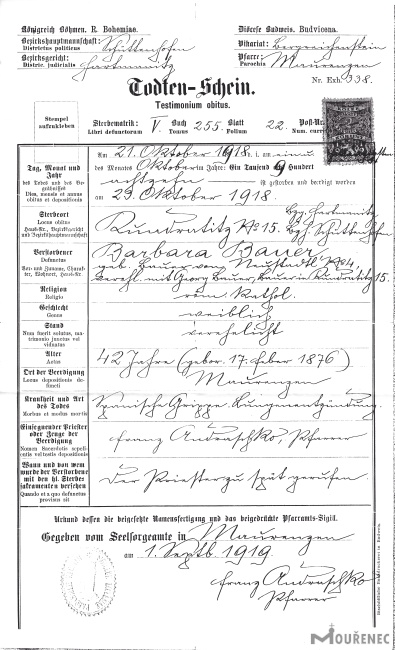 Königreich Böhmen. R. Bohemiae. Diöcese Budweis. Budvicena.
Bezirkshauptmannschaft: Districtus politicus Schüttenhofen Vikariat: Bergreichenstein
Bezirksgericht: Distric. judicialis Hartmanitz Pfarre: Parochia Maurenzen
Nr. Exh. 338.
Todten-Schein.
Testimonium obitus.
Stempel aufzukleben
Sterbematrik: Libri defunctorum V. Buch Tomus 255. Blatt Folium 22. Post-Nr. Num. curr.
Tag, Monat und Jahr
des Todes und des Begräbnisses
Dies, mensis et annus obitus et depositionis
Am 21. Oktober 1918 d. i. am
des Monates Oktober im Jahre: Ein Tausend 9 Hundert
achtzehn ist gestorben und beerdigt worden
am 23. Oktober 1918.
Sterbeort
Locus obitus
Haus-Nr., Bezirksgericht und Bezirkshauptmannschaft
Kundratitz No 15. bzg. Hartmanitz
bzh. Schüttenhofen
Verstorbener
Defunctus
Vor- und Zuname, Charakter, Wohnort, Haus-Nr.
Barbara Bauer
geb. Bauer von Neustadtl No 4
verehl. mit Georg Bauer, Bauer in Kundratitz 15.
Religion
Religio
röm. kathol.
Geschlecht
Genus
weiblich
Stand
Num fuerit solutus, matrimonio junctus vel viduatus
verehelicht
Alter
Aetas
42 Jahre (gebor. 17. Feber 1876)
Ort der Beerdigung
Locus depositionis defuncti
Maurenzen
Krankheit und Art des Todes
Morbus et modus mortis
Spanische Grippe, Lungenentzündung.
Einsegnender Priester oder Zeuge der Beerdigung
Nomen Sacerdotis sepelientis vel testis depositionis
Franz Andraschko, Pfarrer
Wann und von wem wurde der Verstorbene mit den hl. Sterbesakramenten versehen
Quando et a quo defunctus provisus sit
Der Priester zu spät gerufen
Urkund dessen die beigesetzte Namensfertigung und das beigedrückte Pfarramts-Sigill.
Gegeben vom Seelsorgeamte in Maurenzen
am 1. Septb. 1919.
Franz Andraschko
Pfarrer
MOUŘENEC